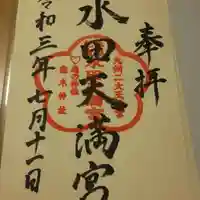 奉拝
水田天満宮
令和三年七月十一日
九州二大天満宮
恋木神社